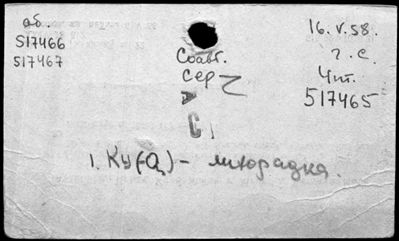 аб.
517466
517467
16.V.58.
г. с.
Чит.
517465
Соавт.
сер
А
С
1. Ку(-Q) - лихорадка.